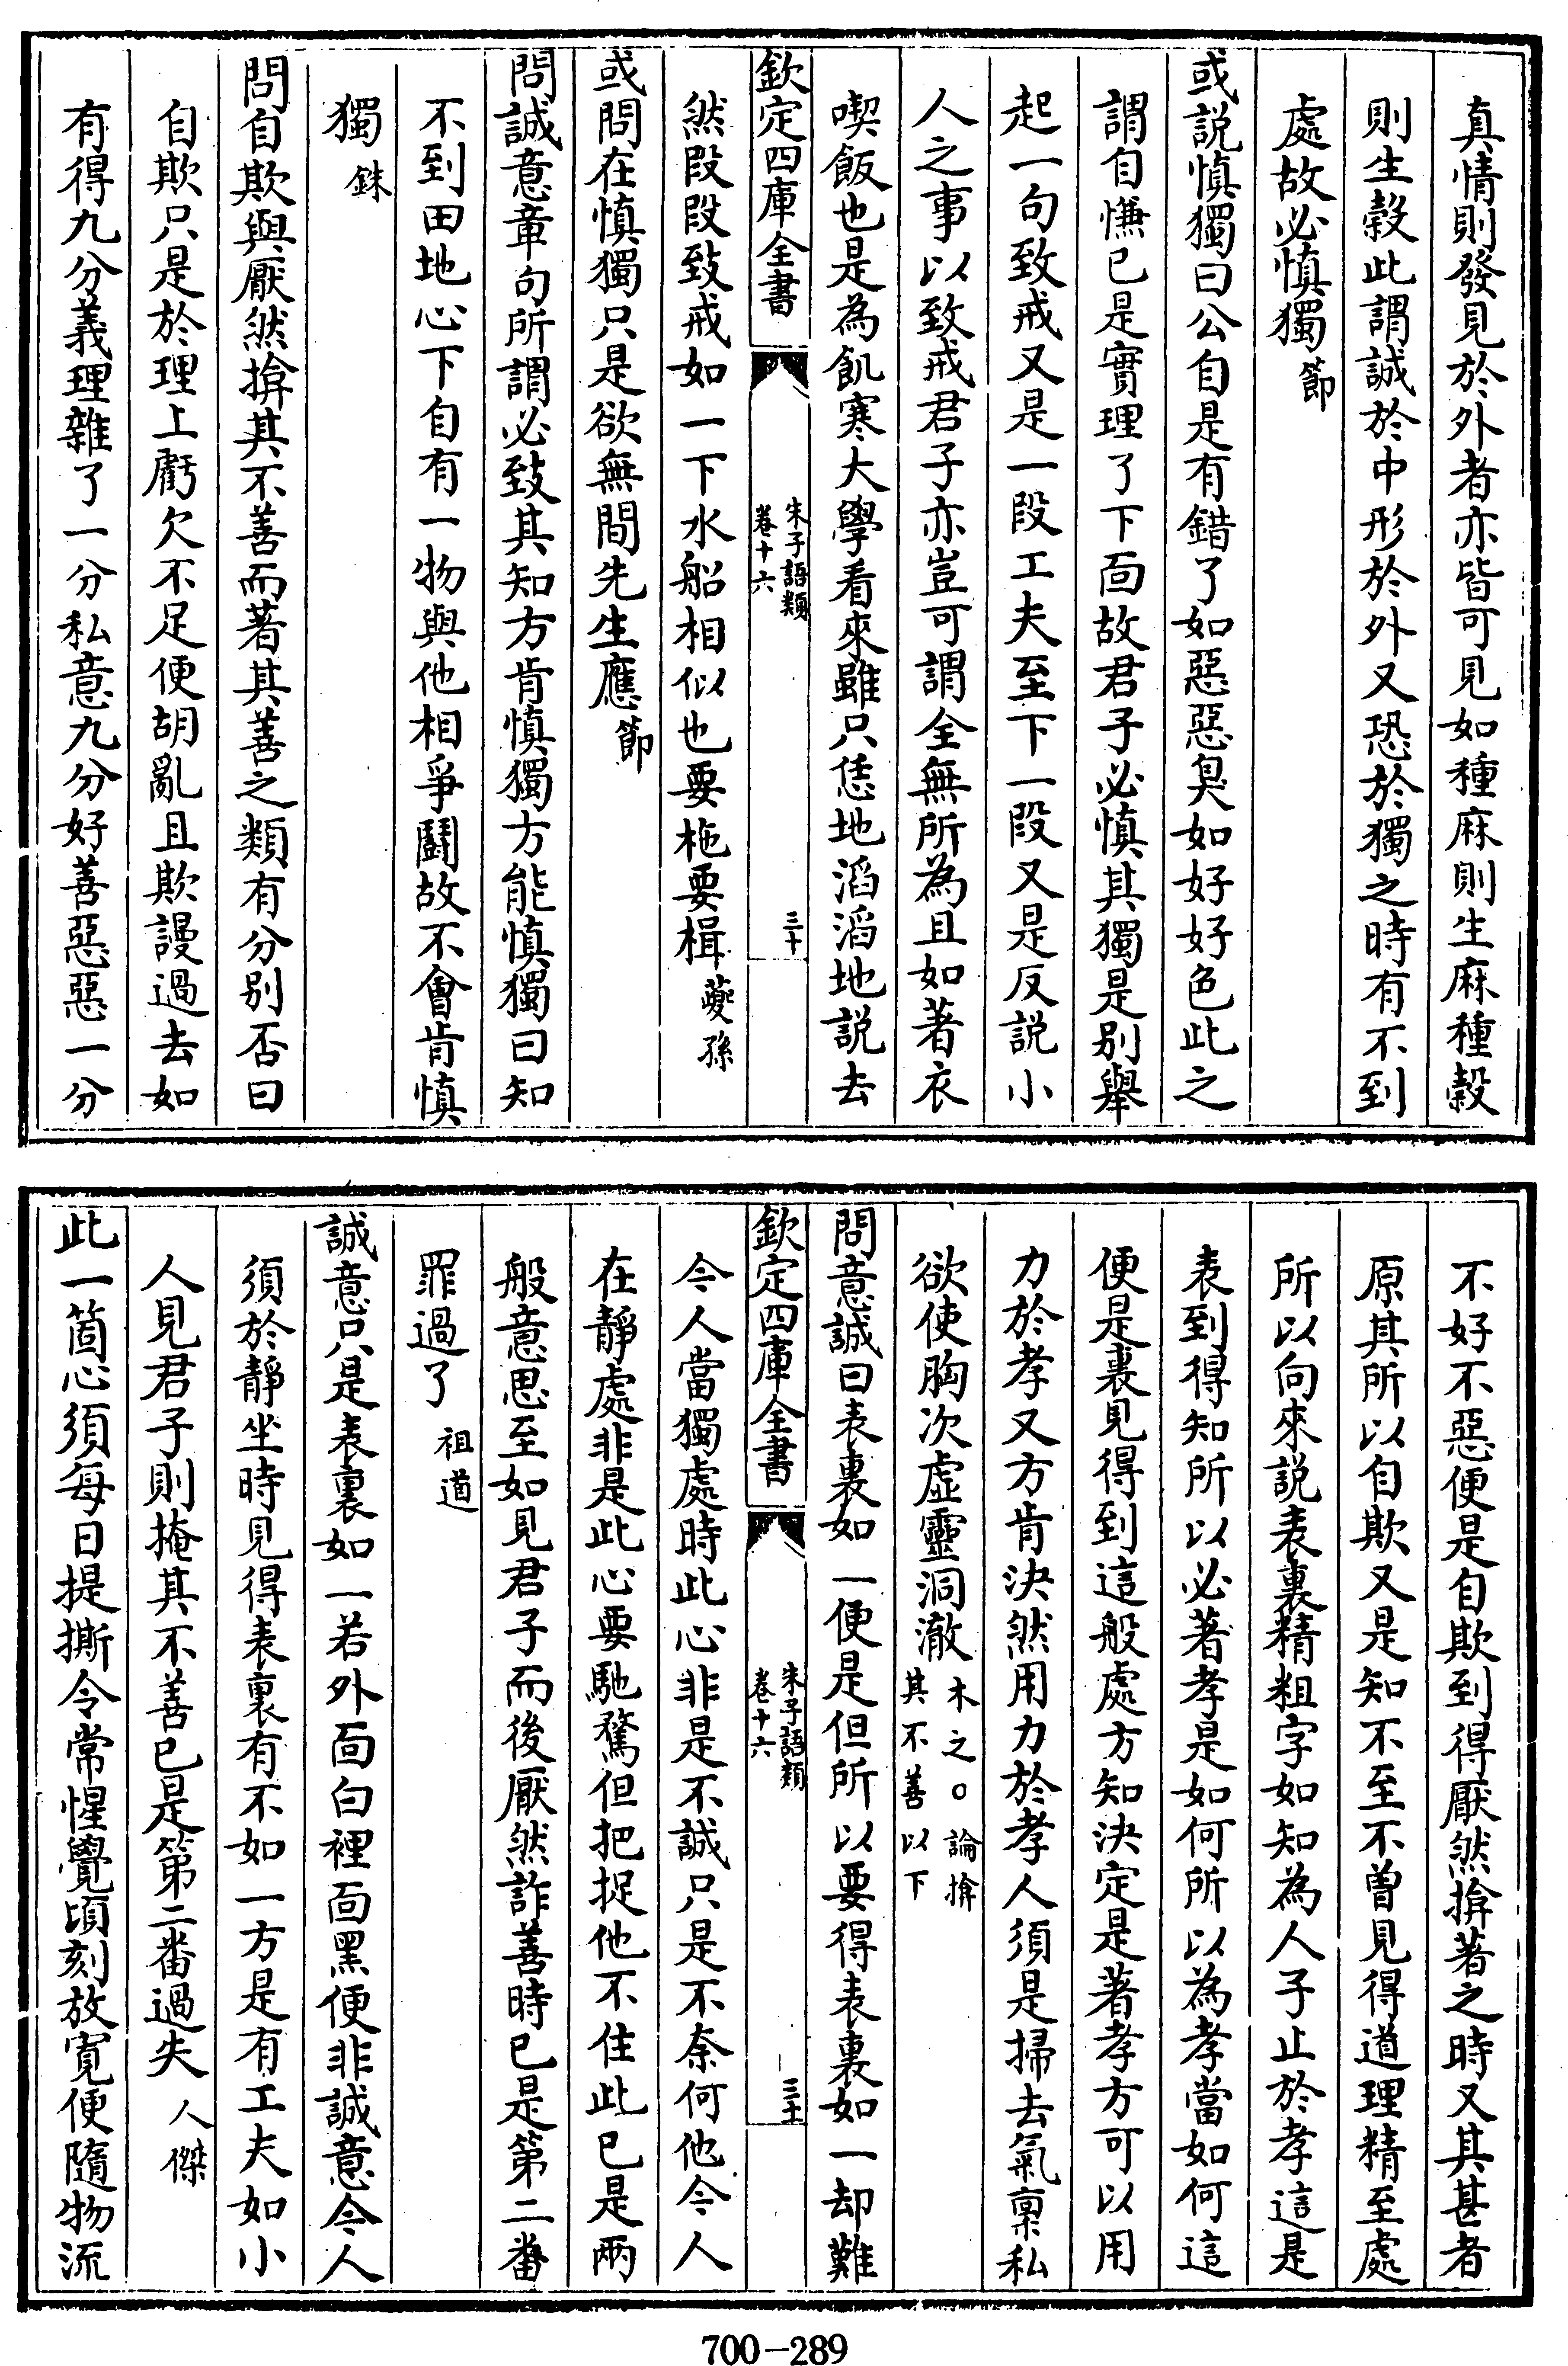 真情則發見於外者亦皆可見如種麻則生麻種穀
則生穀此謂誠於中形於外又恐於獨之時有不到
處故必慎獨節
或説慎獨曰公自是有錯了如惡惡臭如好好色此之
謂自慊已是實理了下面故君子必慎其獨是別舉
起一句致戒又是一段工夫至下一段又是反説小
人之事以致戒君子亦豈可謂全無所為且如著衣
喫飯也是為飢寒大學看來雖只恁地滔滔地説去
欽定四庫全書
朱子語類
卷十六
三十
然段段致戒如一下水船相似也要柂要楫夔孫
或問在慎獨只是欲無間先生應節
問誠意章句所謂必致其知方肯慎獨方能慎獨曰知
不到田地心下自有一物與他相爭鬬故不會肯慎
獨銖
問自欺與厭然揜其不善而著其善之類有分別否曰
自欺只是於理上虧欠不足便胡亂且欺謾過去如
有得九分義理雜了一分私意九分好善惡惡一分
不好不惡便是自欺到得厭然揜著之時又其甚者
原其所以自欺又是知不至不曽見得道理精至處
所以向來説表裏精粗字如知為人子止於孝這是
表到得知所以必著孝是如何所以為孝當如何這
便是裏見得到這般處方知決定是著孝方可以用
力於孝又方肯決然用力於孝人須是掃去氣稟私
欲使胸次虛靈洞澈木之○論揜
其不善以下
問意誠曰表裏如一便是但所以要得表裏如一却難
欽定四庫全書
朱子語類
卷十六
三十
今人當獨處時此心非是不誠只是不奈何他今人
在靜處非是此心要馳騖但把捉他不住此已是兩
般意思至如見君子而後厭然詐善時已是第二番
罪過了祖道
誠意只是表裏如一若外面白裡面黑便非誠意今人
須於靜坐時見得表裏有不如一方是有工夫如小
人見君子則掩其不善已是第二番過失人傑
此一箇心須每日提撕令常惺覺頃刻放寛便隨物流
700-289